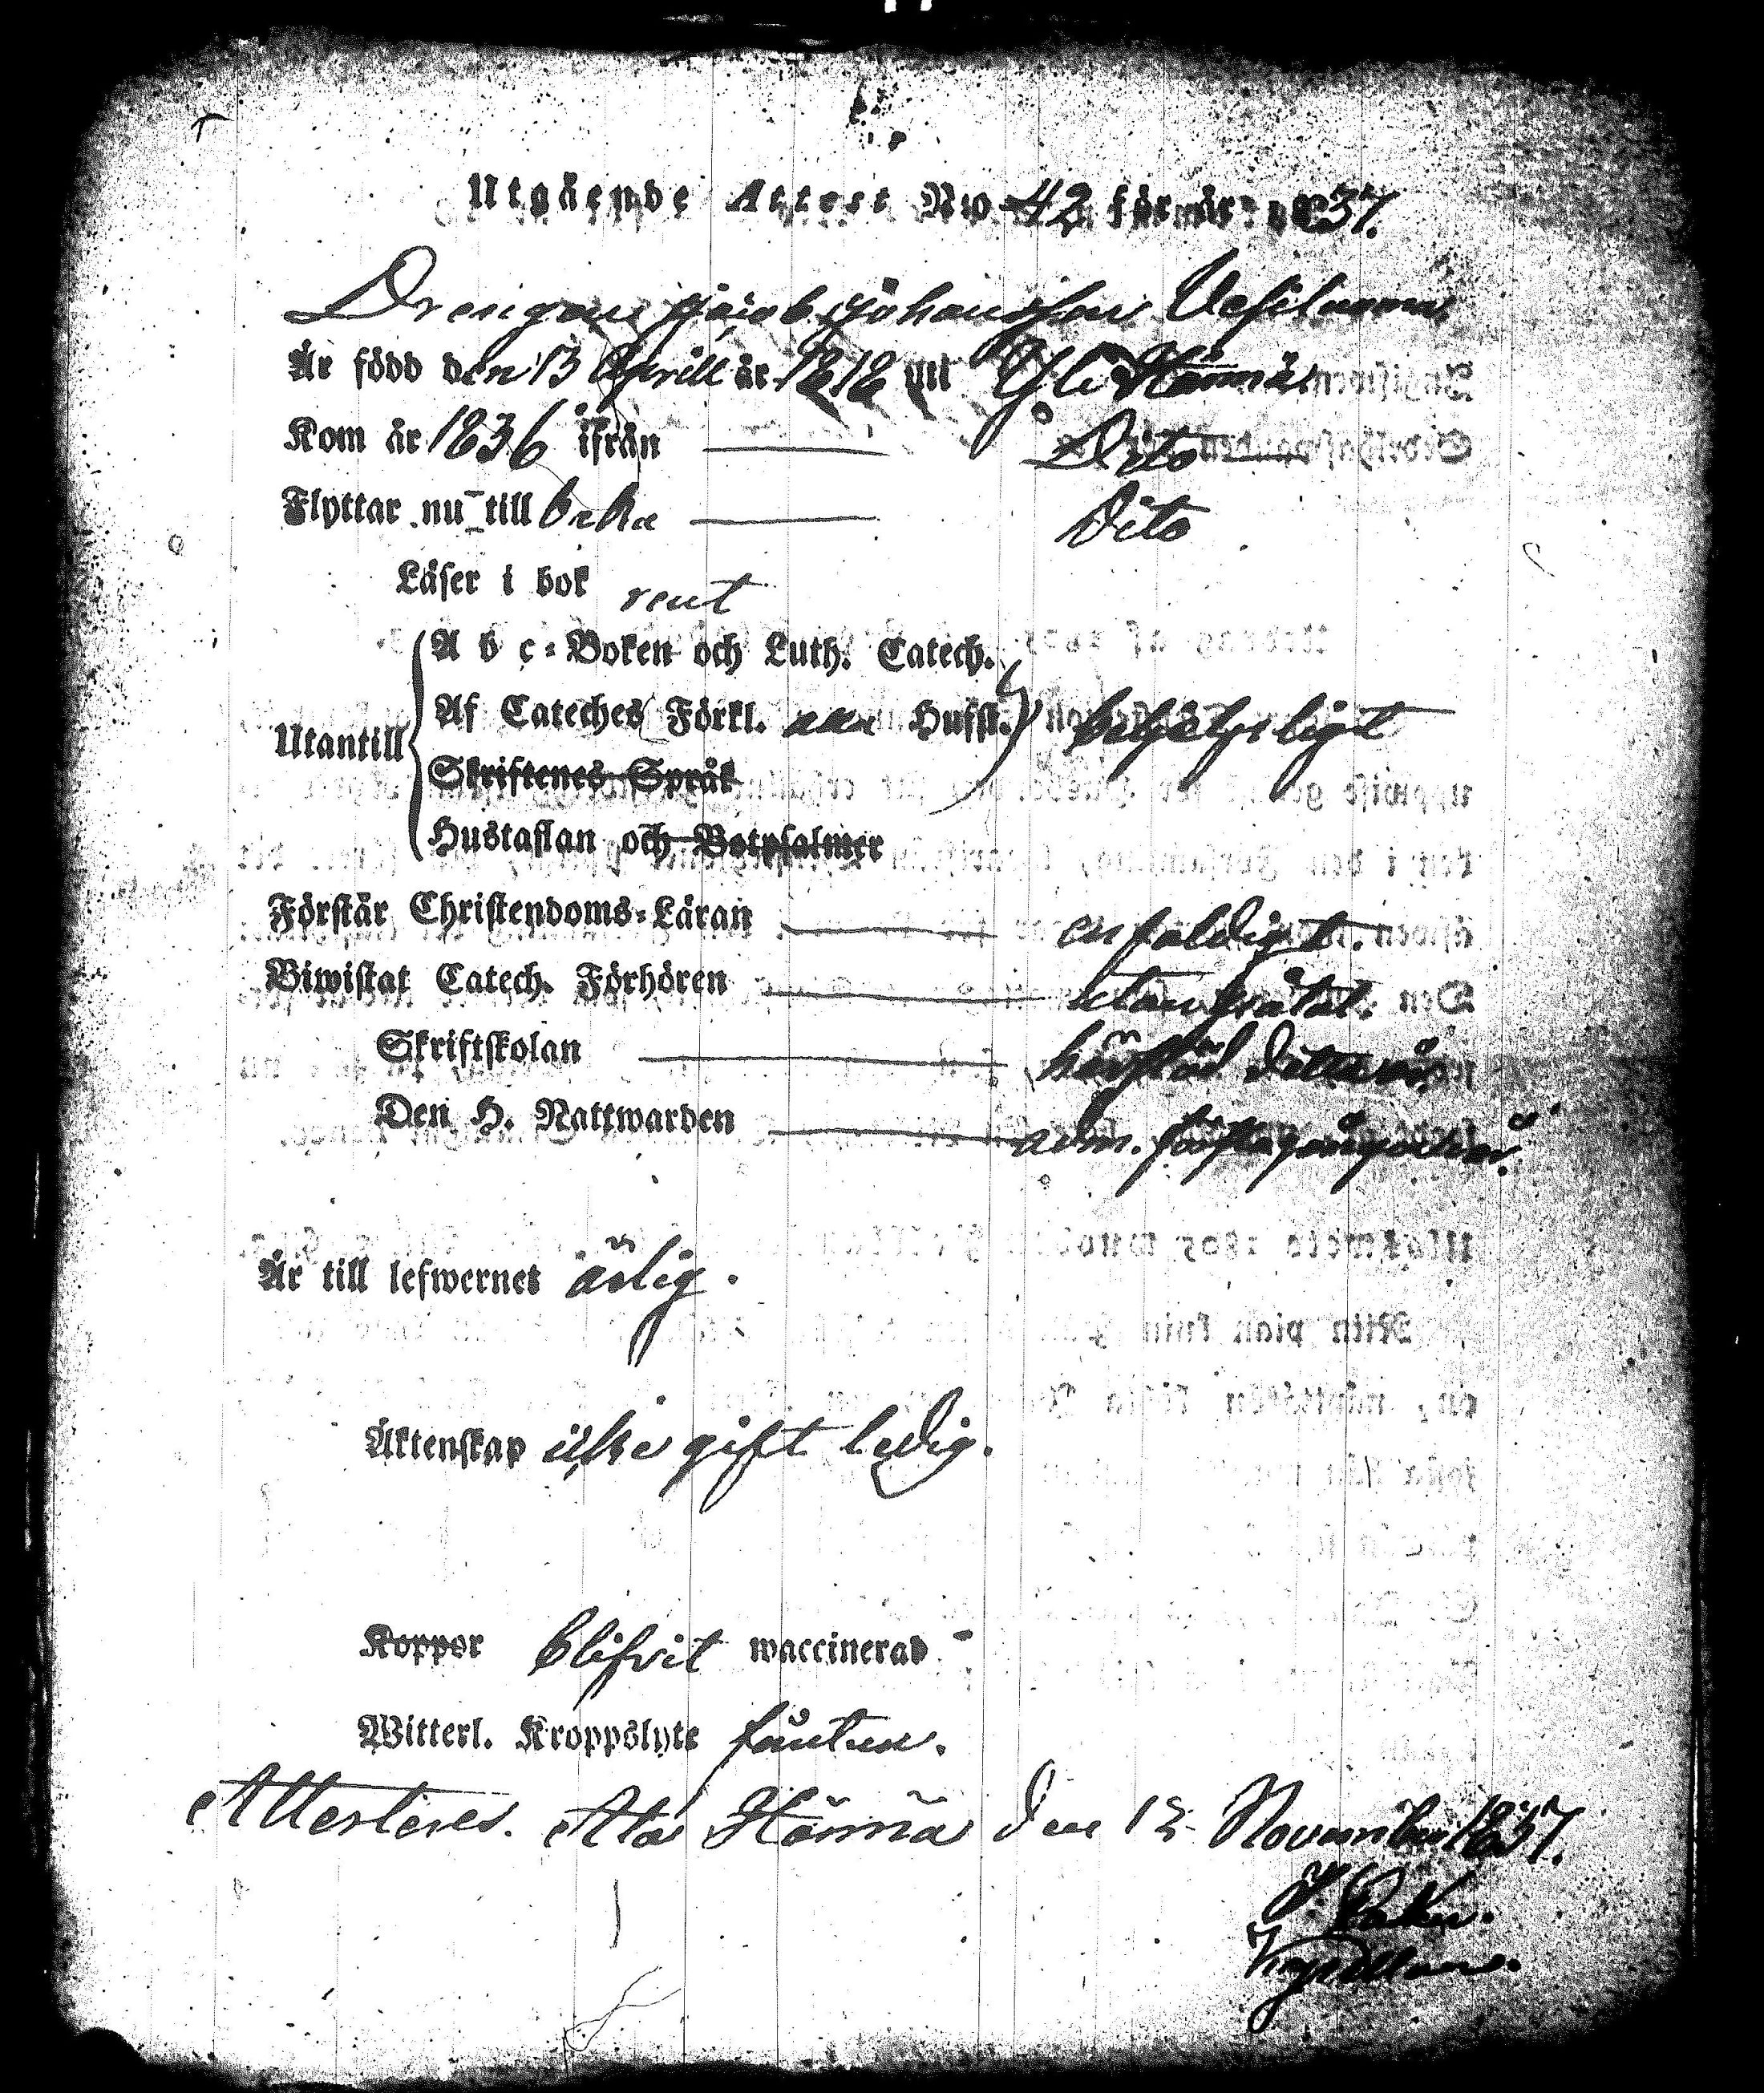 Utgående Attest No 42 för år 1837.
Drengen Jacob Johansson Vesiluoma
Är född den 13 Aprill år 1818 uti Yli Härmä
Kom år 1836 ifrån Dito
Flyttar nu till baka Dito
Läser i bok rent
A b c-Boken och Luth. Catech.
Utantill Af Cateches Förkl. Hufst. behjelpligt
Skriftenes Språk
Hustaflan och Botpsalmer
Förstår Christendoms-Läran enfaldigt.
Biwistat Catech. Förhören
Skriftskolan detta år.
Den H. Nattwarden adm.
Är till lefwernet ärlig.
Äktenskap icke gift ledig.
Koppor blifvit waccinerad
Witterl. Kroppslyte
Attesteres. Ala Härmä den 12 November 1837.